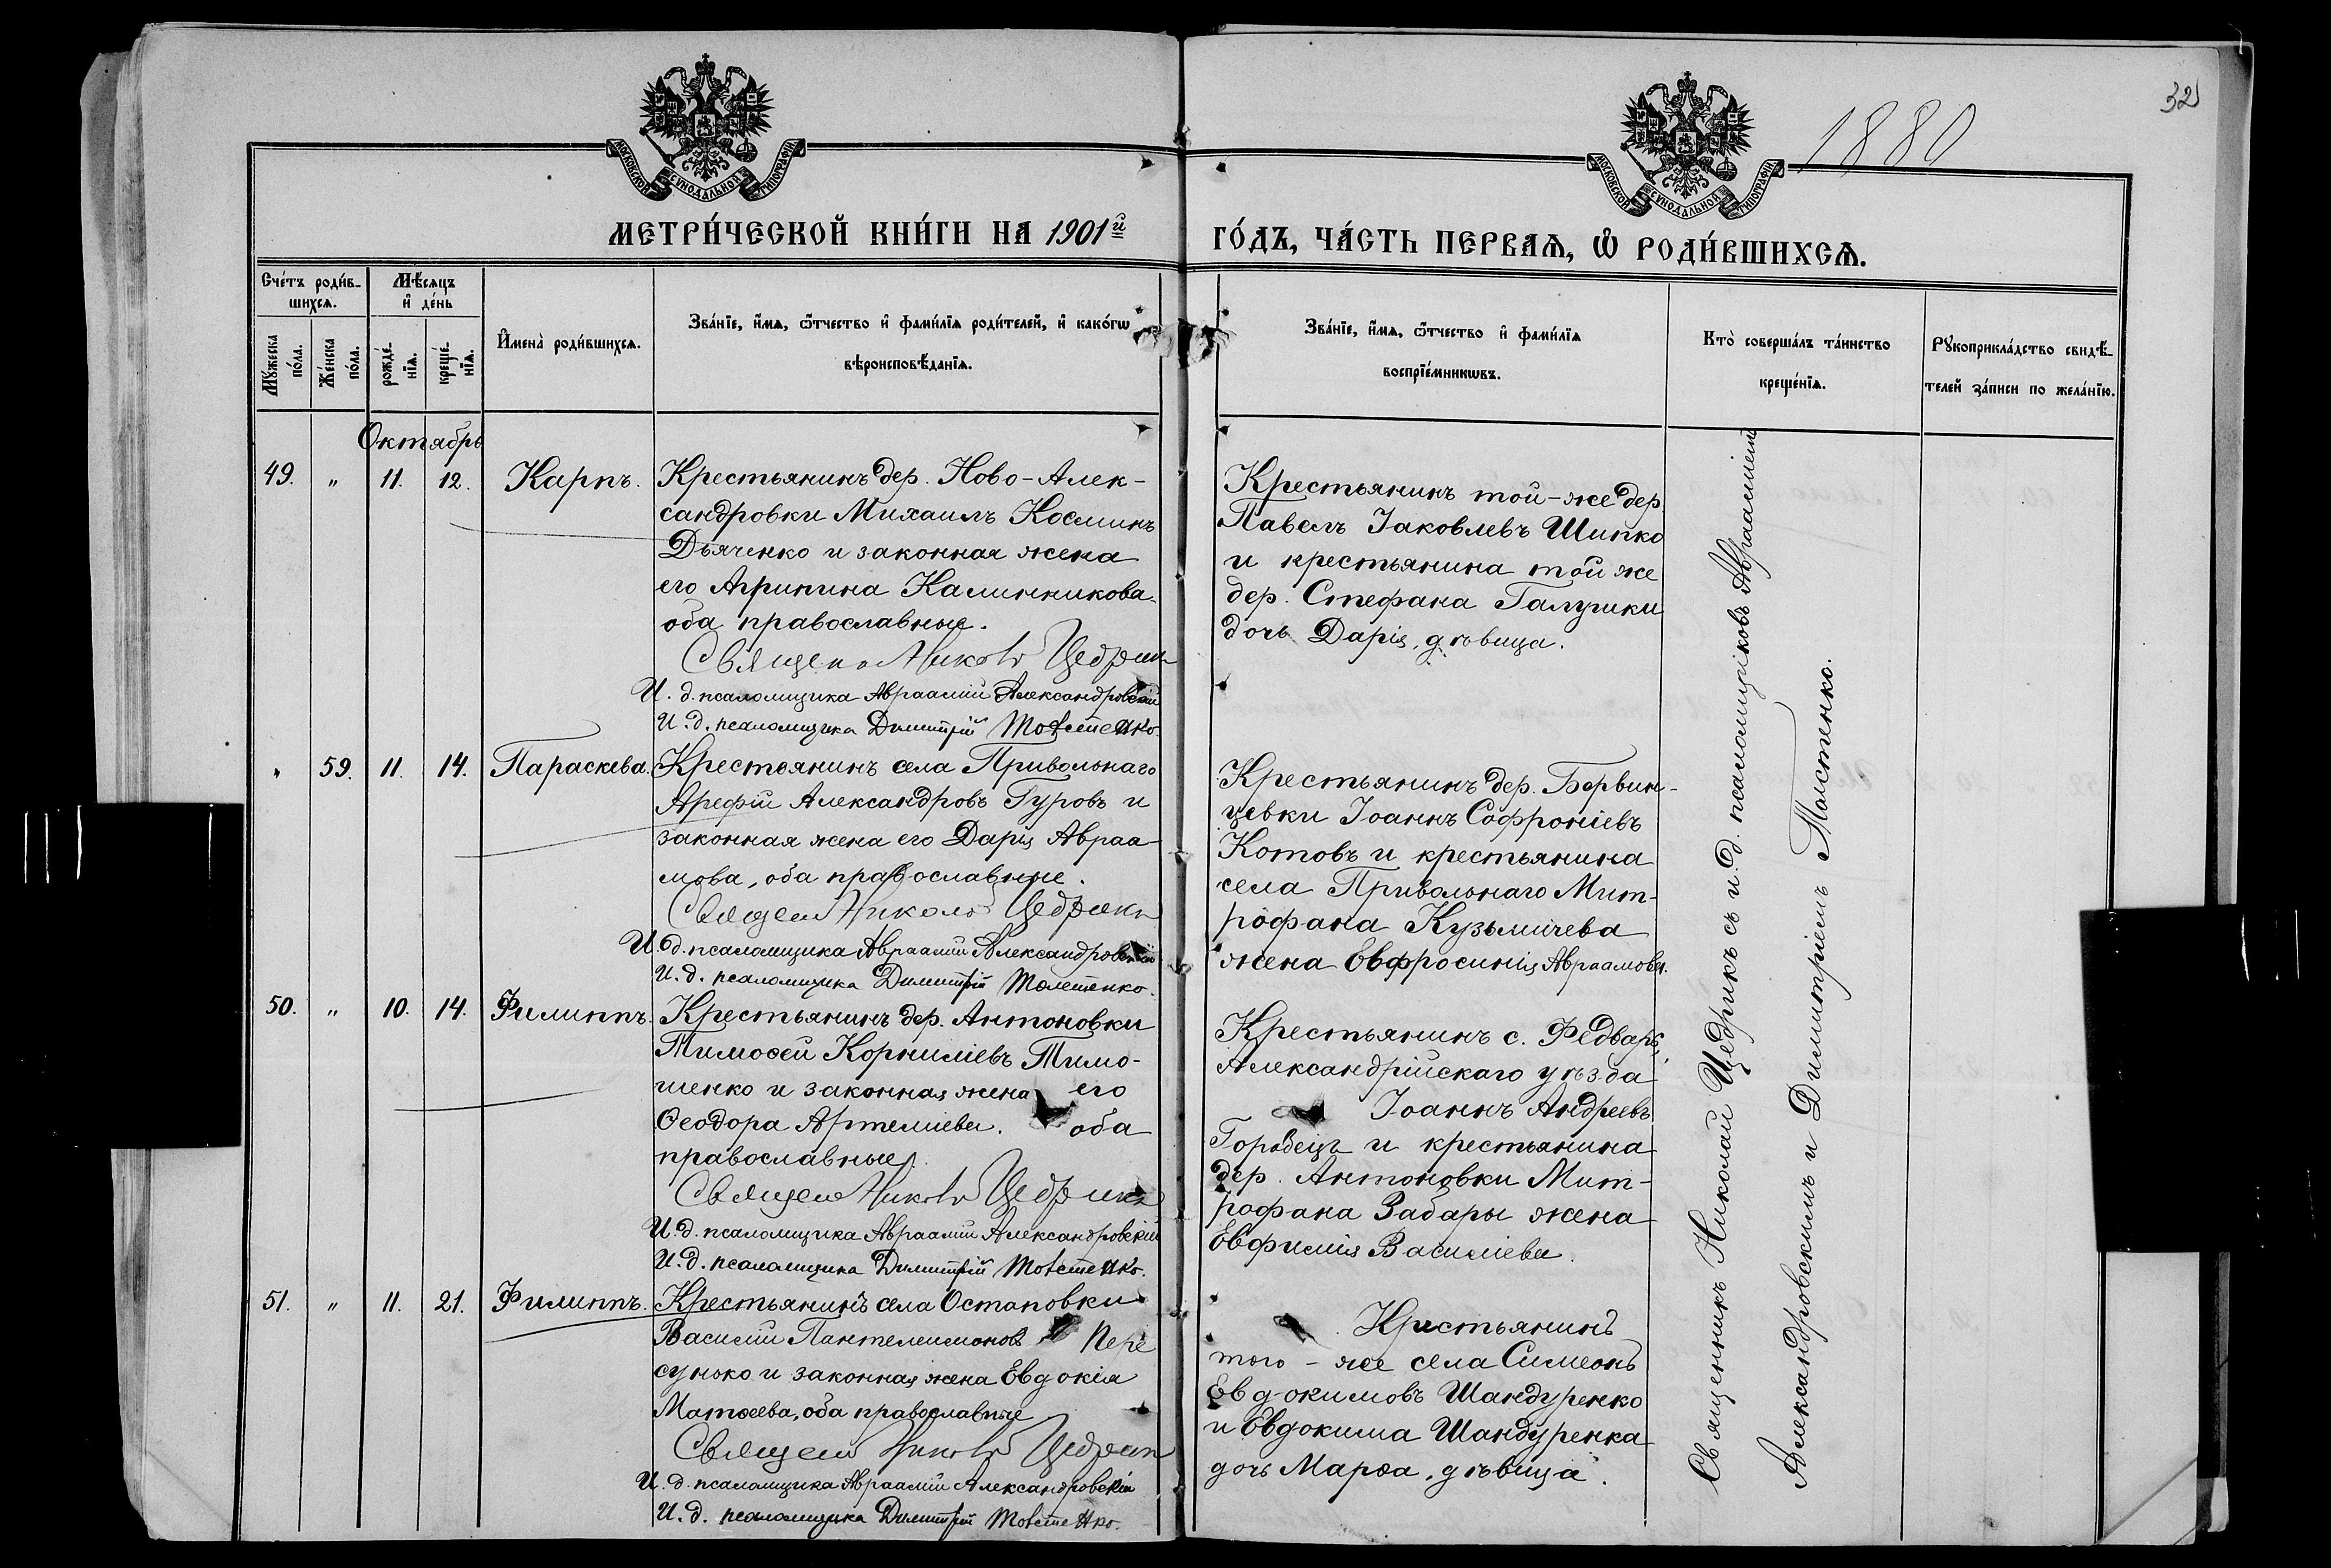 32
1880
МОСКОВСКОЙ СѴНОДАЛЬНОЙ ТИПОГРАФІИ
МОСКОВСКОЙ СѴНОДАЛЬНОЙ ТИПОГРАФІИ
МЕТРИ́ЧЕСКОЙ КНИ́ГИ НА 1901й
ГО́ДЪ, ЧА́СТЬ ПЕРВАѦ, Ѽ РОДИ́ВШИХСѦ.
Сче́тъ роди́в-
шихсѧ.
Мѣ́сѧцъ
и҆ де́нь
Мꙋ́жеска
по́ла.
Же́нска
по́ла.
рожде́-
нїѧ.
креще́-
нїѧ.
И҆мена̀ роди́вшихсѧ.
Зва́нїе, и҆́мѧ, ѻ҆́тчество и҆ фами́лїѧ роди́телей, и҆ како́гѡ
вѣроисповѣ́данїѧ.
Зва́нїе, и҆́мѧ, ѻ҆́тчество и҆ фами́лїѧ
воспрїе́мникѡвъ.
Кто̀ соверша́лъ та́инство
креще́нїѧ.
Рꙋкоприкла́дство свидѣ́-
телей за́писи по жела́нїю.
Октябрь
49. " 11. 12. Карпъ.
Крестьянинъ дер. Ново-Алек-
сандровки Михаилъ Косминъ
Дьяченко и законная жена
его Агрипина Калинникова
оба православные.
Священ Николай Цедрик
И. д. псаломщика Авраамий Александровский
И. д. псаломщика Димитрій Толстенко.
Крестьянинъ той-же дер
Павелъ Іаковлевъ Шипко
и крестьянина той же
дер. Стефана Галушки
дочь Дарія, дѣвица.
" 59. 11. 14. Параскева.
Крестьянинъ села Привольнаго
Арефій Александровъ Гуровъ и
законная жена его Дарія Авраа-
мова, оба православные.
Священ Николай Цедрик
И. д. псаломщика Авраамий Александровский
И. д. псаломщика Димитрій Толстенко.
Крестьянинъ дер. Бервин-
цевки Іоаннъ Софроніевъ
Котовъ и крестьянина
села Привольнаго Мит-
рофана Кузьмичева
жена Евфросинія Авраамова.
50. " 10. 14. Филиппъ.
Крестьянинъ дер. Антоновки
Тимоѳей Корниліевъ Тимо-
шенко и законная жена его
Ѳеодора Артеміева. оба
православные.
Священ Николай Цедрик
И. д. псаломщика Авраамий Александровский
И. д. псаломщика Димитрій Толстенко.
Крестьянинъ с. Федваръ,
Александрійскаго уѣзда
Іоаннъ Андреевъ
Горобецъ и крестьянина
дер. Антоновки Мит-
рофана Забары жена
Евфимія Василіева.
51. " 11. 21. Филиппъ.
Крестьянинъ села Остановки
Василий Пантелеимоновъ Пере
сунько и законная жена Евдокія
Матѳеева, оба православные
Священ Николай Цедрик
И. д. псаломщика Авраамий Александровскій
И. д. псаломщика Димитрій Толстенко.
Крестьянинъ
того-же села Симеонъ
Евдокимовъ Шандуренко
и Евдокима Шандуренка
дочь Марѳа, дѣвица.
Священникъ Николай Цедрикъ съ и. д. псаломщиковъ Авраамиемъ
Александровскимъ и Димитріемъ Толстенко.